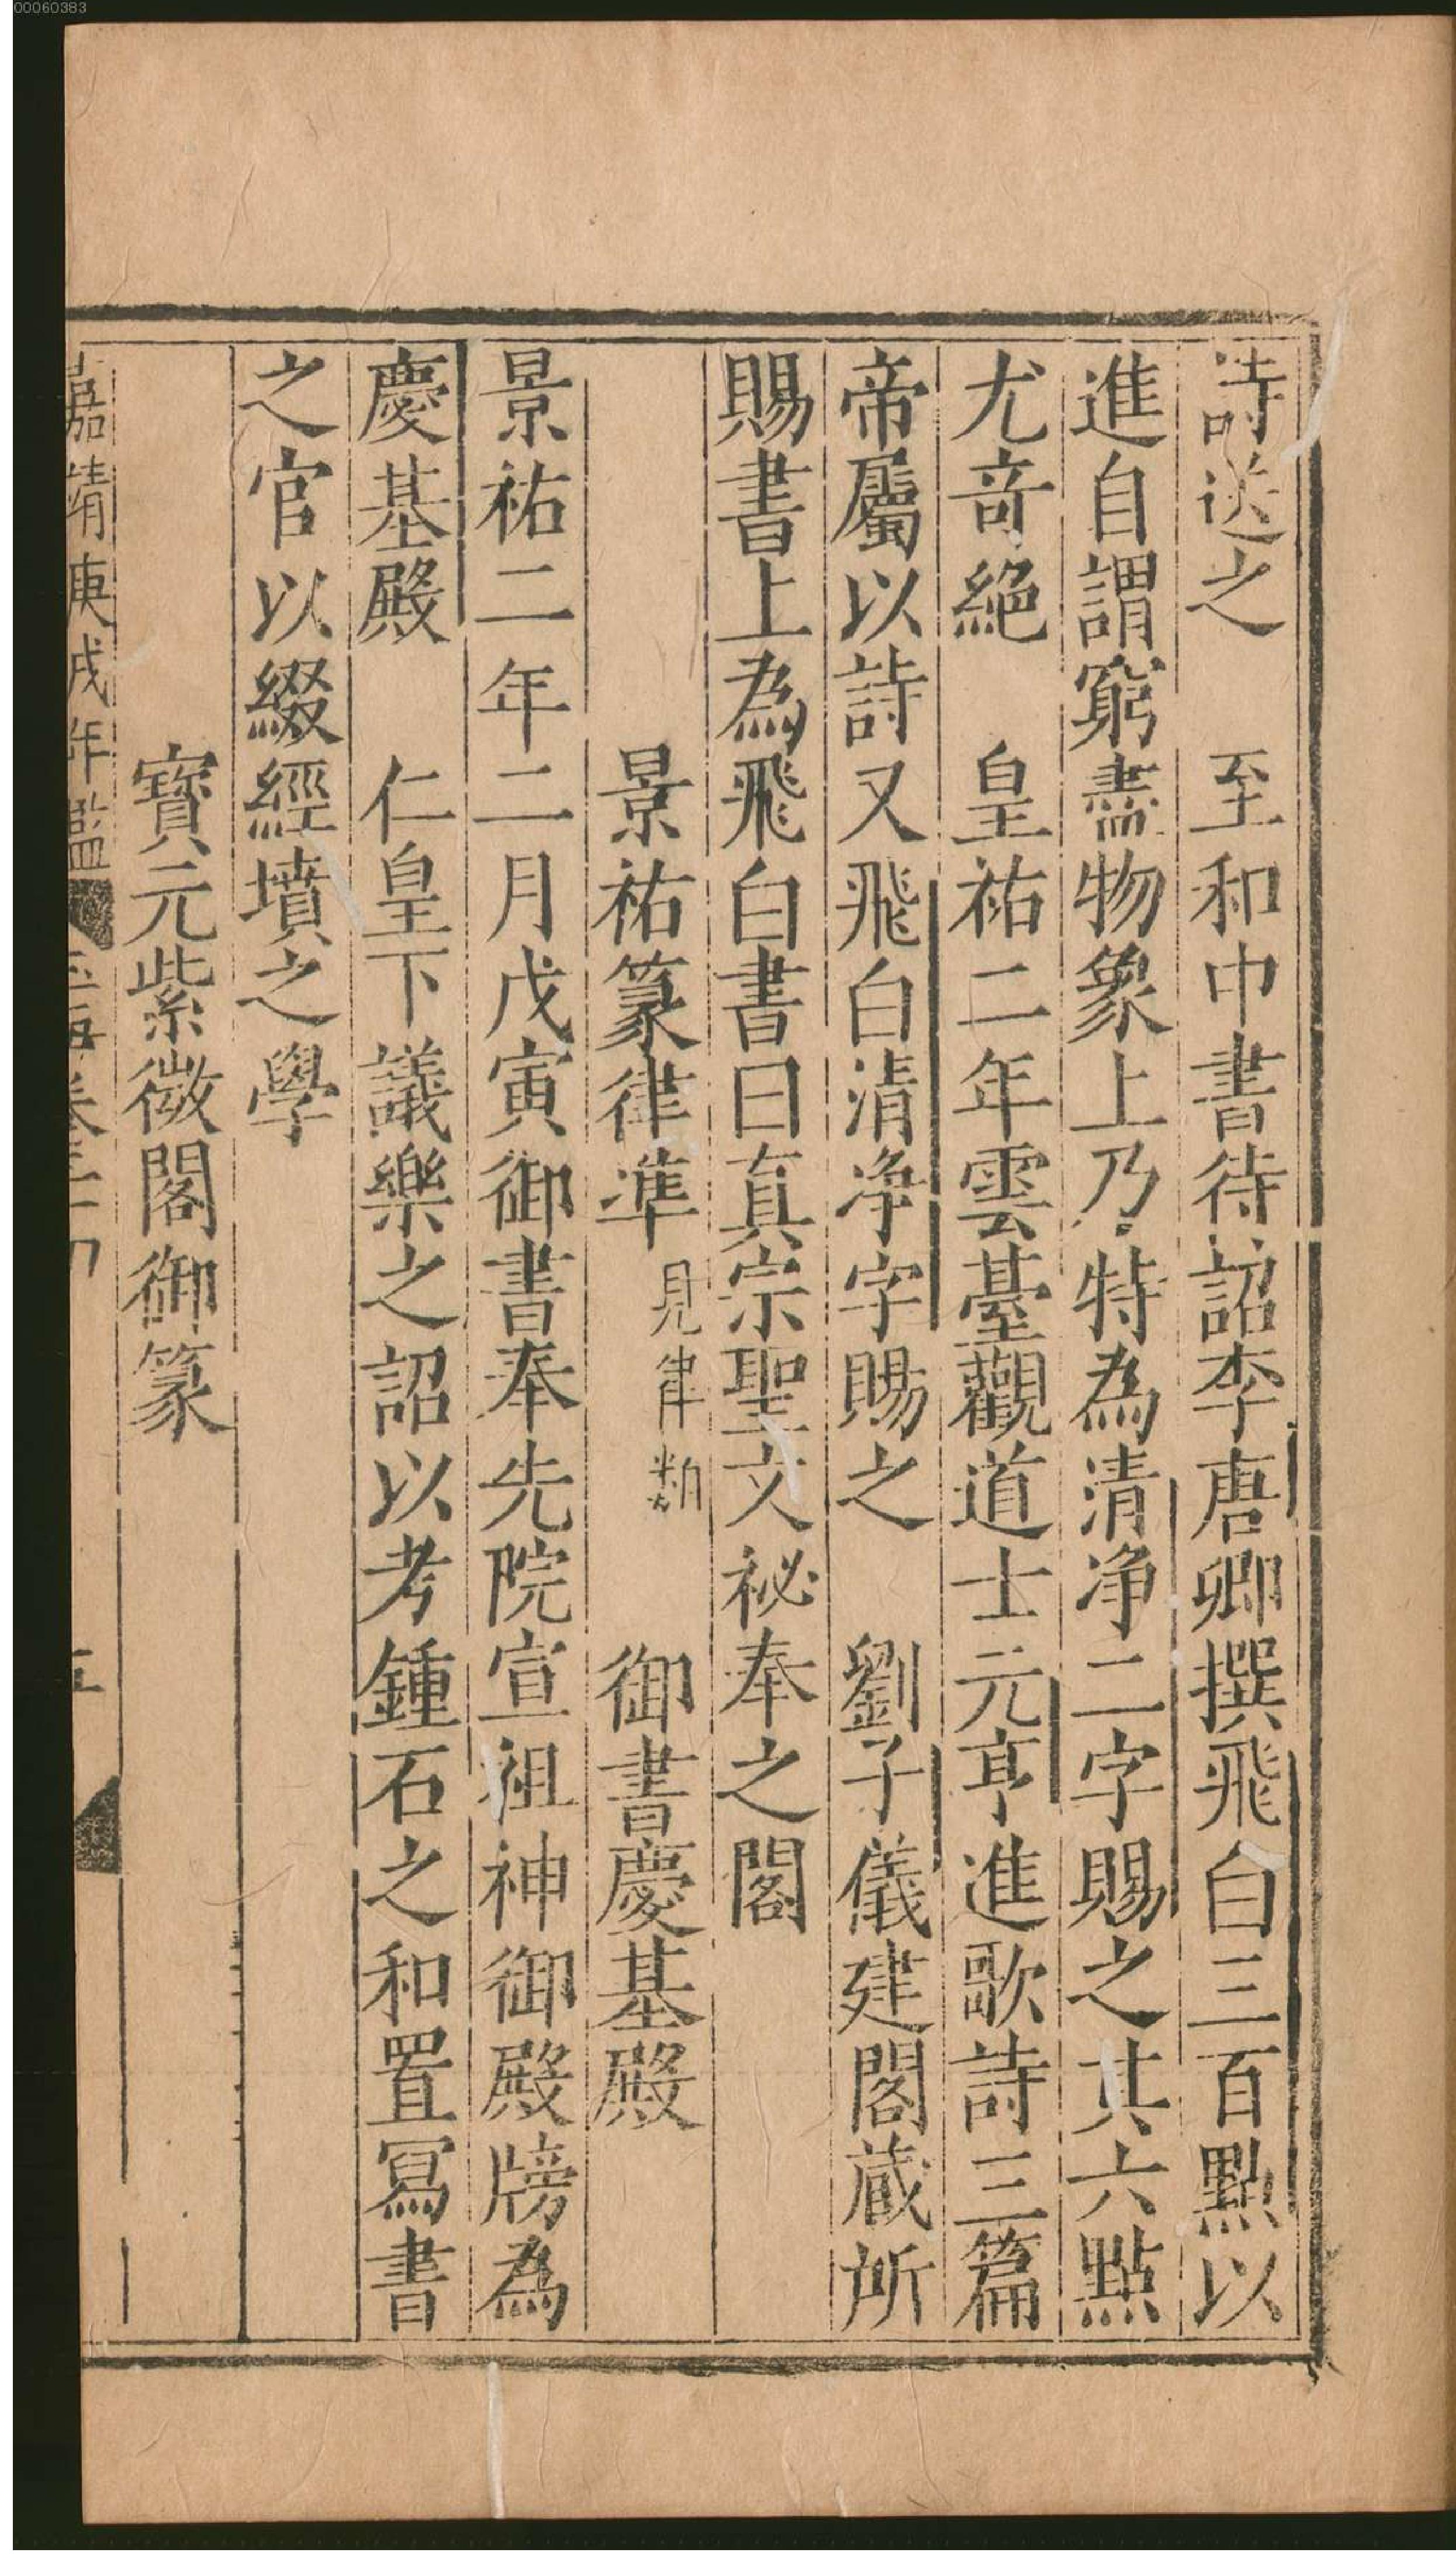 00060383
詩送之　至和中書待詔李唐卿撰飛白三百點以
進自謂窮盡物象上乃特為清淨二字賜之其六點
尤竒絕　皇祐二年雲臺觀道士元亨進歌詩三篇
帝屬以詩又飛白清淨字賜之　劉子儀建閣藏所
賜書上為飛白書曰真宗聖文祕奉之閣
景祐篆律準 見律類　御書慶基殿
景祐二年二月戊寅御書奉先院宣祖神御殿牓為
慶基殿　仁皇下議樂之詔以考鍾石之和置冩書
之官以綴經墳之學
寶元紫微閣御篆
嘉靖庚戌年